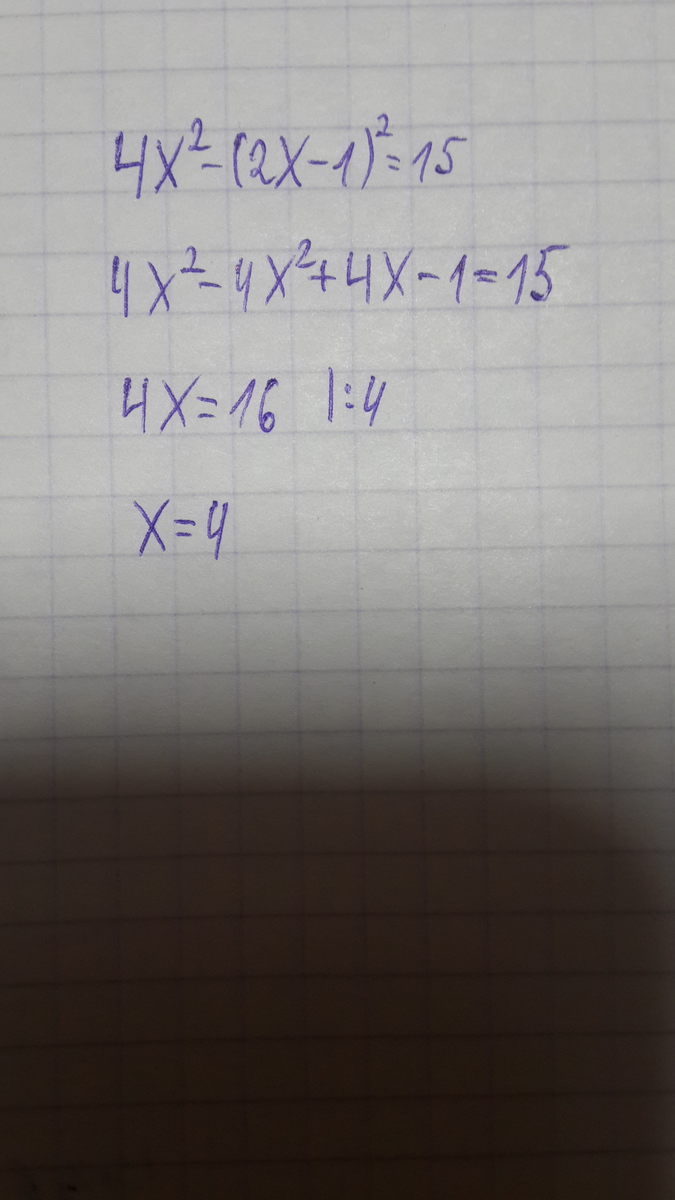 4x²-(2x-1)²=15
4x²-4x²+4x-1=15
4x=16 |:4
x=4